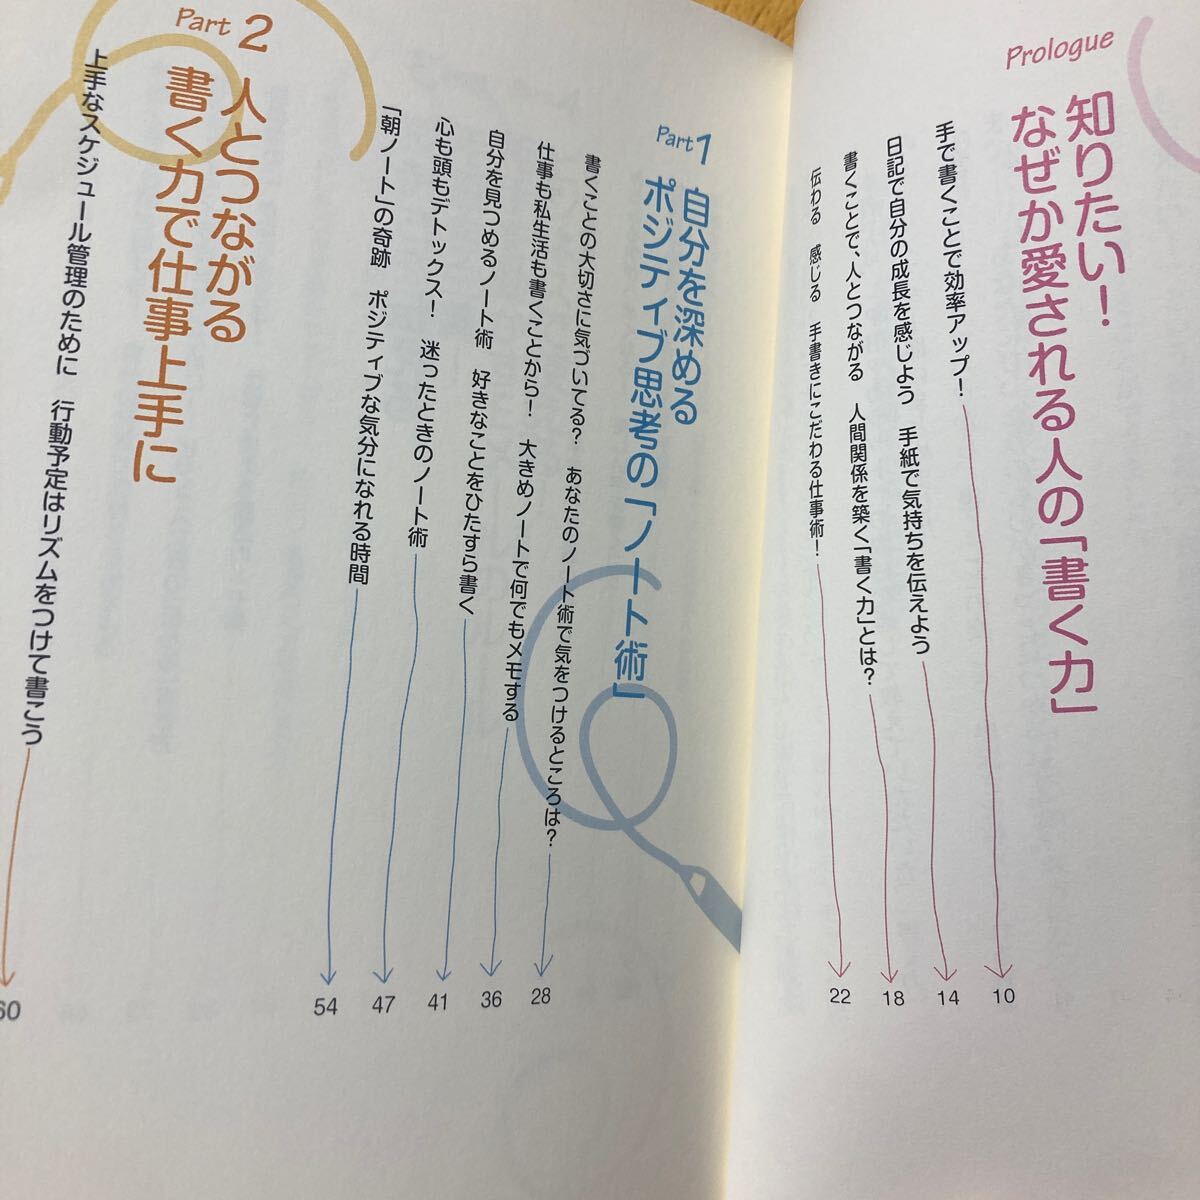 Prologue
知りたい！
なぜか愛される人の「書く力」
手で書くことで効率アップ！
10
日記で自分の成長を感じよう　手紙で気持ちを伝えよう
14
書くことで、人とつながる　人間関係を築く「書く力」とは？
18
伝わる　感じる　手書きにこだわる仕事術！
22
Part 1
自分を深める
ポジティブ思考の「ノート術」
書くことの大切さに気づいてる？　あなたのノート術で気をつけるところは？
28
仕事も私生活も書くことから！　大きめノートで何でもメモする
36
自分を見つめるノート術　好きなことをひたすら書く
41
心も頭もデトックス！　迷ったときのノート術
47
「朝ノート」の奇跡　ポジティブな気分になれる時間
54
Part 2
人とつながる
書く力で仕事上手に
上手なスケジュール管理のために　行動予定はリズムをつけて書こう
60